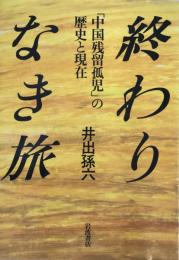 終わり
なき旅
「中国残留孤児」の
歴史と現在
井出孫六
岩波書店